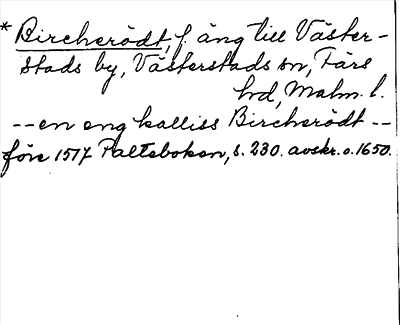 * Bircherödt, f. äng till Väster-
stads by, Västerstads sn, Färs
hd, Malm. l.
-- en eng kalliss Bircherödt --
före 1517 Palteboken, s. 230. avskr. o. 1650.